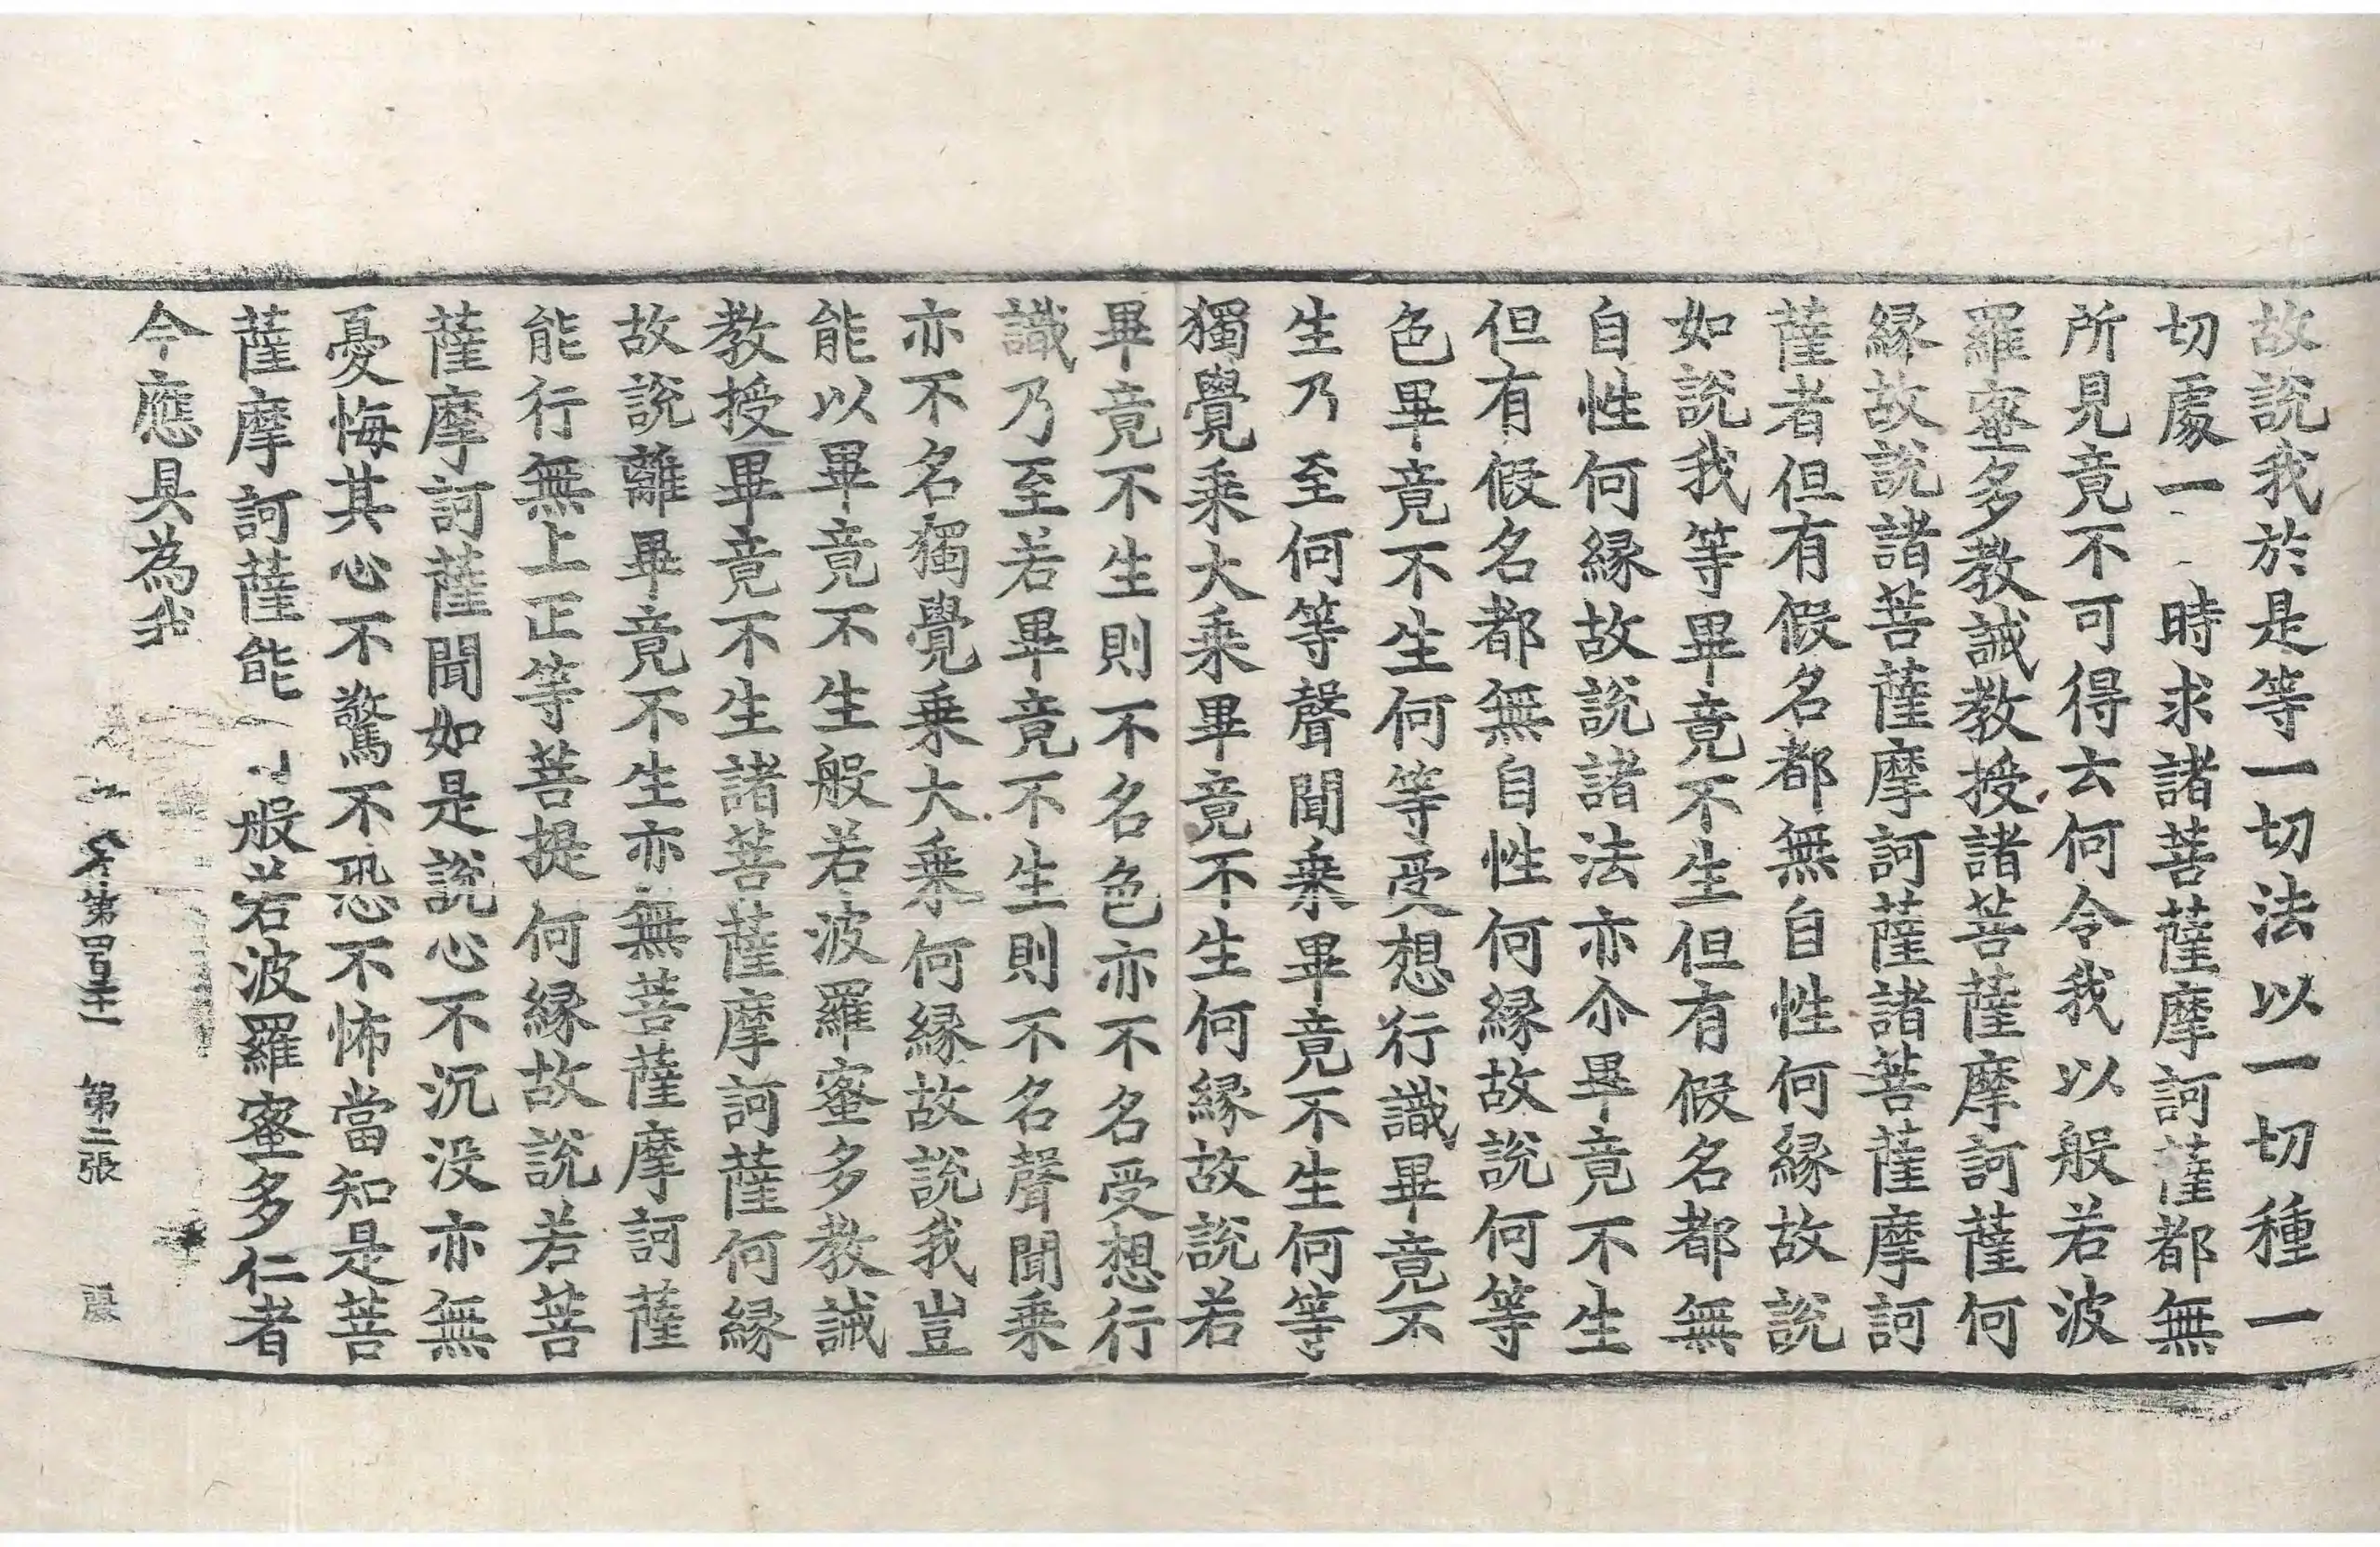 故說我於是等一切法以一切種一
切處一時求諸菩薩摩訶薩都無
所見竟不可得云何令我以般若波
羅蜜多教誡教授諸菩薩摩訶薩何
緣故說諸菩薩摩訶薩諸菩薩摩訶
薩者但有假名都無自性何緣故說
如說我等畢竟不生但有假名都無
自性何緣故說諸法亦尒畢竟不生
但有假名都無自性何緣故說何等
色畢竟不生何等受想行識畢竟不
生乃至何等聲聞乗畢竟不生何等
獨覺乗大乗畢竟不生何緣故說若
畢竟不生則不名色亦不名受想行
識乃至若畢竟不生則不名聲聞乗
亦不名獨覺乗大乗何緣故說我豈
能以畢竟不生般若波羅蜜多教誡
教授畢竟不生諸菩薩摩訶薩何緣
故說離畢竟不生亦無菩薩摩訶薩
能行無上正等菩提何緣故說若菩
薩摩訶薩聞如是說心不沉没亦無
憂悔其心不驚不恐不怖當知是菩
薩摩訶薩能般若波羅蜜多仁者
今應具為我
第四百二十一 第二張